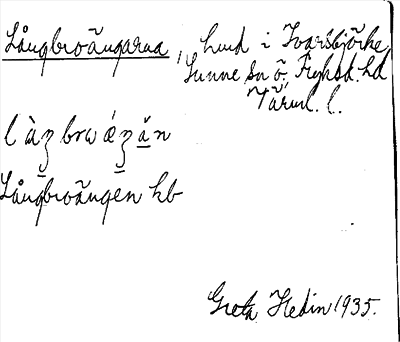 Långbroängarna, hmd i Ivarsbjörke,
Sunne sn Ö. Fryksd. hd
Värml. l.
Långbroängen kb
Greta Hedin 1935.